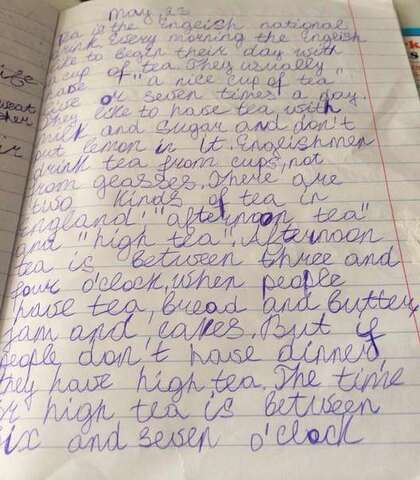 May 23
Tea is the Engeish national
drink. Every morning the Engeish
like to begin their day with
a cup of tea. They usually
have "a nice cup of tea"
five or seven times a day.
They like to have tea, with
milk and sugar and don't
put lemon in It. Engeishmen
drink tea from cups, not
from geasses. There are
two kinds of tea in
England: "afternoon tea"
and "high tea". Afternoon
tea is between three and
four o'clock, when people
have tea, bread and butter,
jam and, cakes. But if
people don't have dinner,
they have high tea. The time
or high tea is between
six and seven o'clock